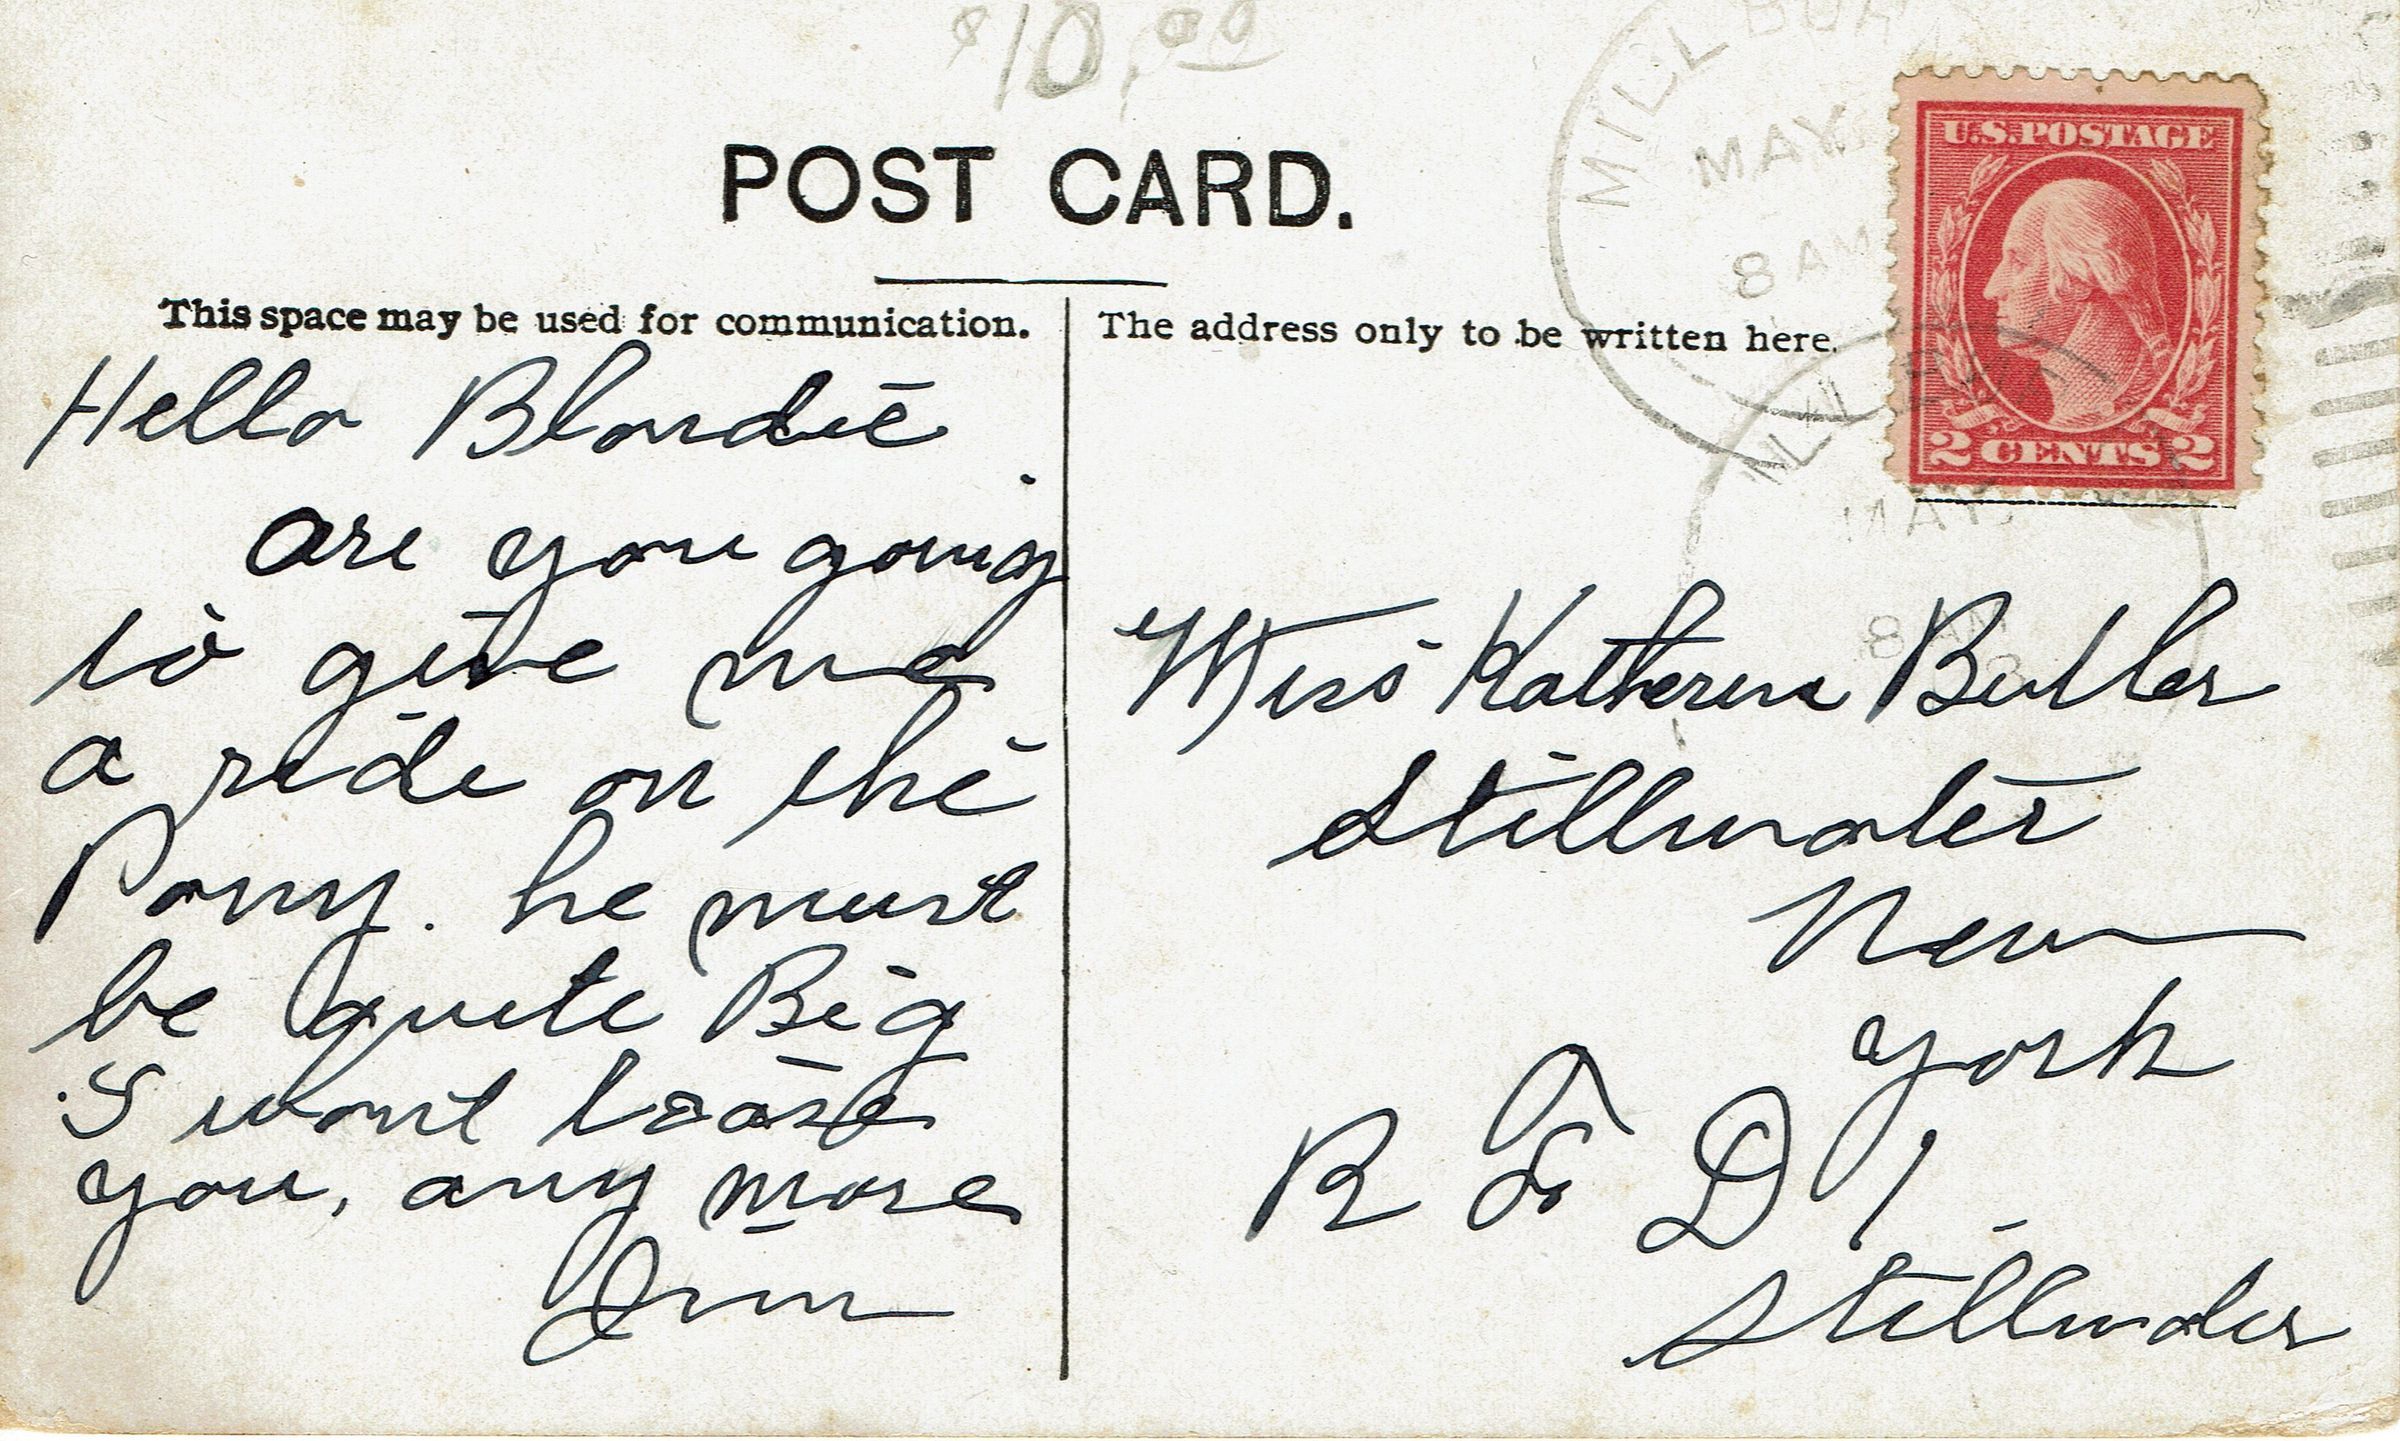 $10.00
MILLBURN
MAY
8 AM
U.S. POSTAGE
2 CENTS 2
POST CARD.
This space may be used for communication.
Hello Blondie
are you going
to give me
a ride on the
Pony. he must
be quite Big
I wont tease
you, any more
Jim
The address only to be written here.
MAY
8 AM
Miss Katherine Butler
Stillwater
New
York
R F D 1
Stillwater